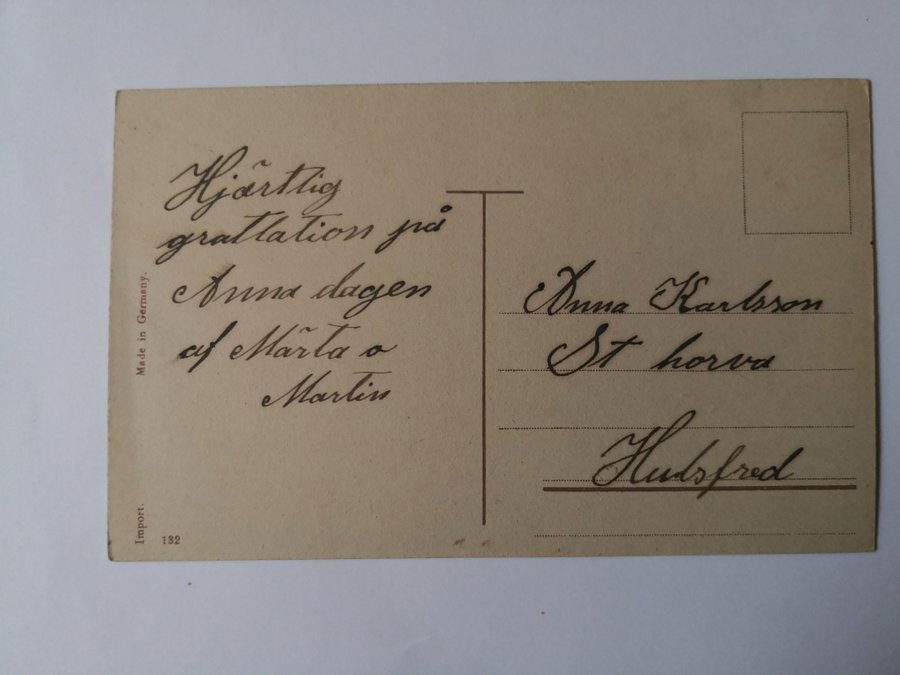 Hjärtlig
grattlation på
Anna dagen
af Märta o
Martin
Anna Karlsson
St horva
Hulsfred
Made in Germany.
Import.
132